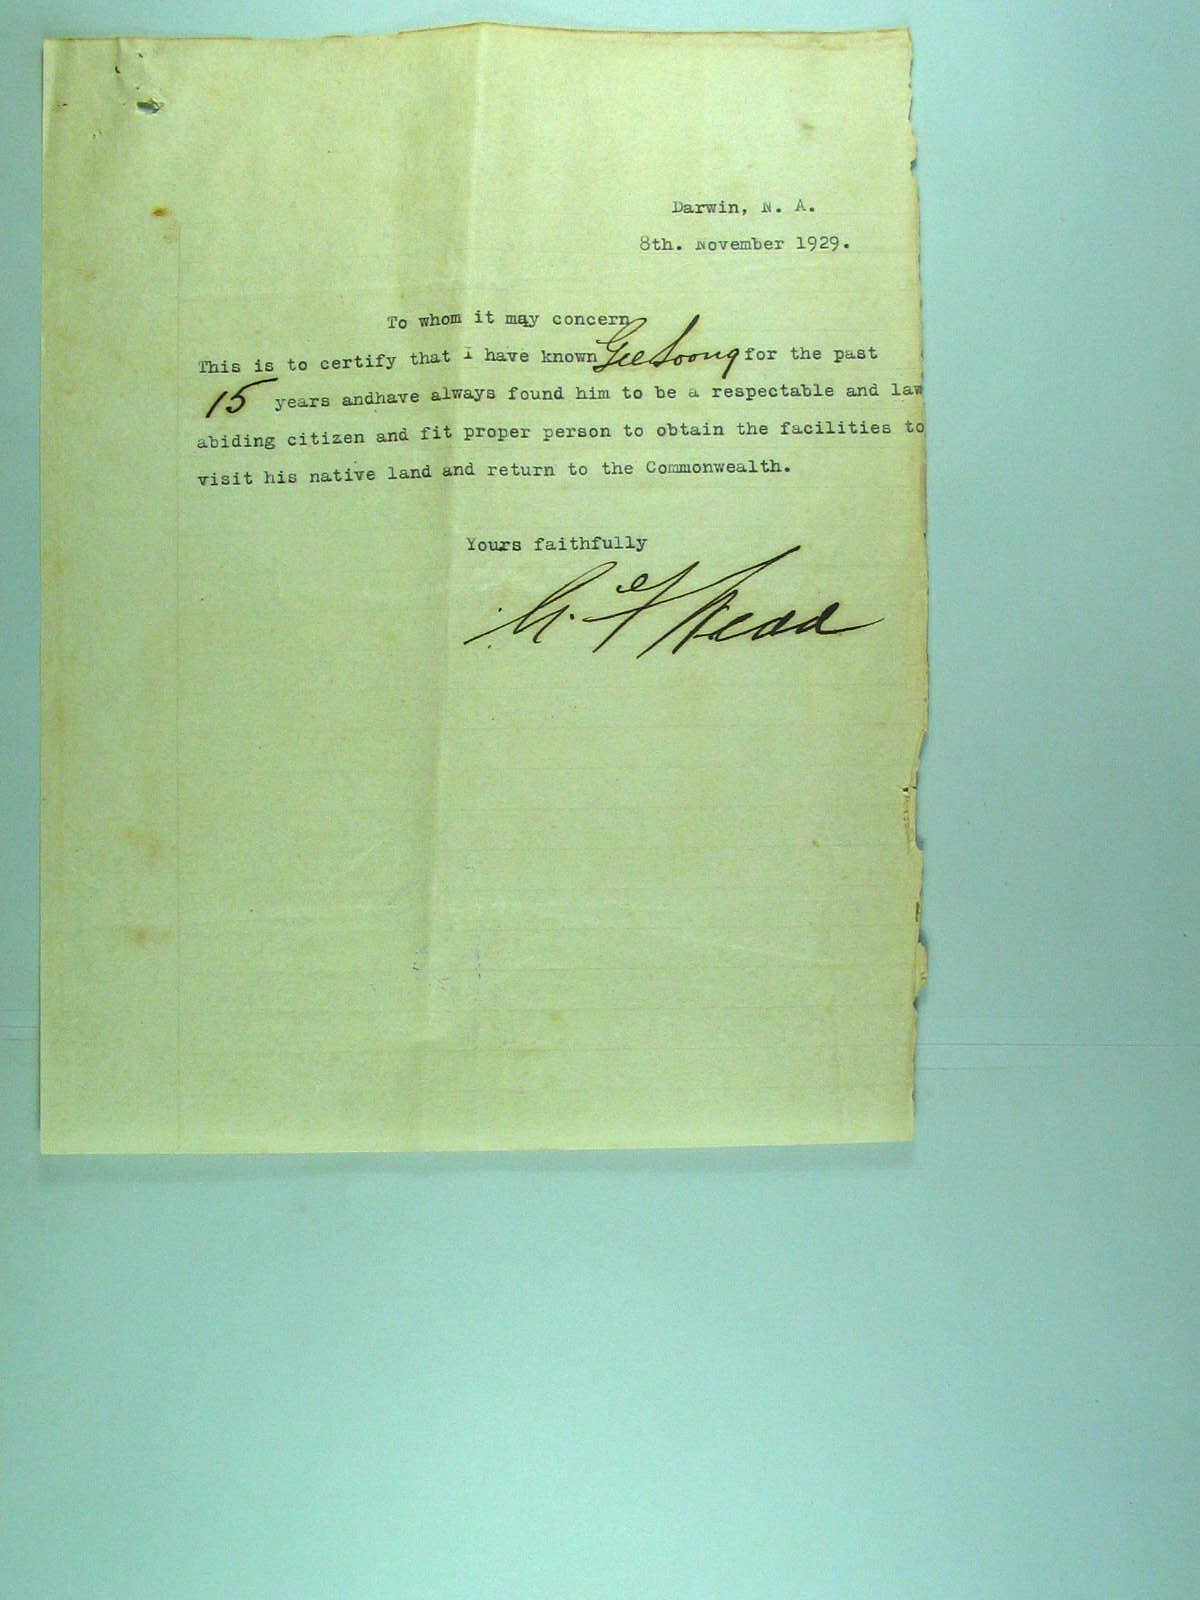 Darwin, N. A.
8th. November 1929.
To whom it may concern
This is to certify that I have known Gee Soong for the past
15 years andhave always found him to be a respectable and law
abiding citizen and fit proper person to obtain the facilities to
visit his native land and return to the Commonwealth.
Yours faithfully